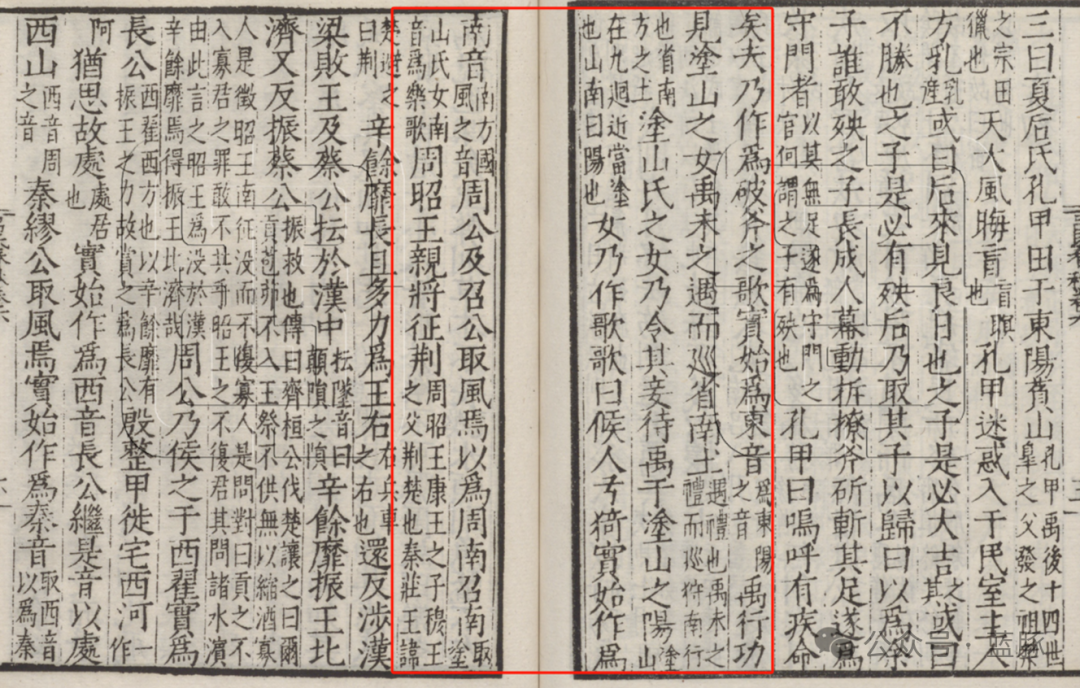 三曰夏后氏孔甲田于東陽萯山孔甲禹後十四世皐之父發之祖桀
之宗田獵也天大風晦盲盲暝也孔甲迷惑入于民室主人
方乳乳産或曰后來見良日也之子是必大吉之其或曰
不勝也之子是必有殃后乃取其子以歸曰以爲余
子誰敢殃之子長成人幕動拆橑斧斫斬其足遂爲
守門者以其無足遂爲守門之官何謂之子有殃也孔甲曰嗚呼有疾命
矣夫乃作爲破斧之歌實始爲東音爲東陽之音禹行功
見塗山之女禹未之遇而巡省南土遇禮也禹未之禮而巡狩南行
也省南方之土塗山氏之女乃令其妾待禹于塗山之陽山
在九迴近當塗也山南曰陽也女乃作歌歌曰候人兮猗實始作爲
南音南方國風之音周公及召公取風焉以爲周南召南取塗
山氏女南音爲樂歌周昭王親將征荆周昭王康王之子穆王之父荆楚也秦莊王諱
楚避之曰荆辛餘靡長且多力爲王右右兵車之右也還反涉漢
梁敗王及蔡公抎於漢中抎墜音曰顚隕之隕辛餘靡振王北
濟又反振蔡公振救也傳曰齊桓公伐楚讓之曰爾貢苞茅不入王祭不供無以縮酒寡
人是徵昭王南征没而不復寡人是問對曰貢之不入寡君之罪敢不共乎昭王之不復君其問諸水濱
由此言之昭王爲没於漢辛餘靡焉得振王北濟哉周公乃侯之于西翟實爲
長公西翟西方也以辛餘靡有振王之力故賞之爲長公殷整甲徙宅西河一作
阿猶思故處處居也實始作爲西音長公繼是音以處
西山西音周之音秦繆公取風焉實始作爲秦音取西音以爲秦
公众号